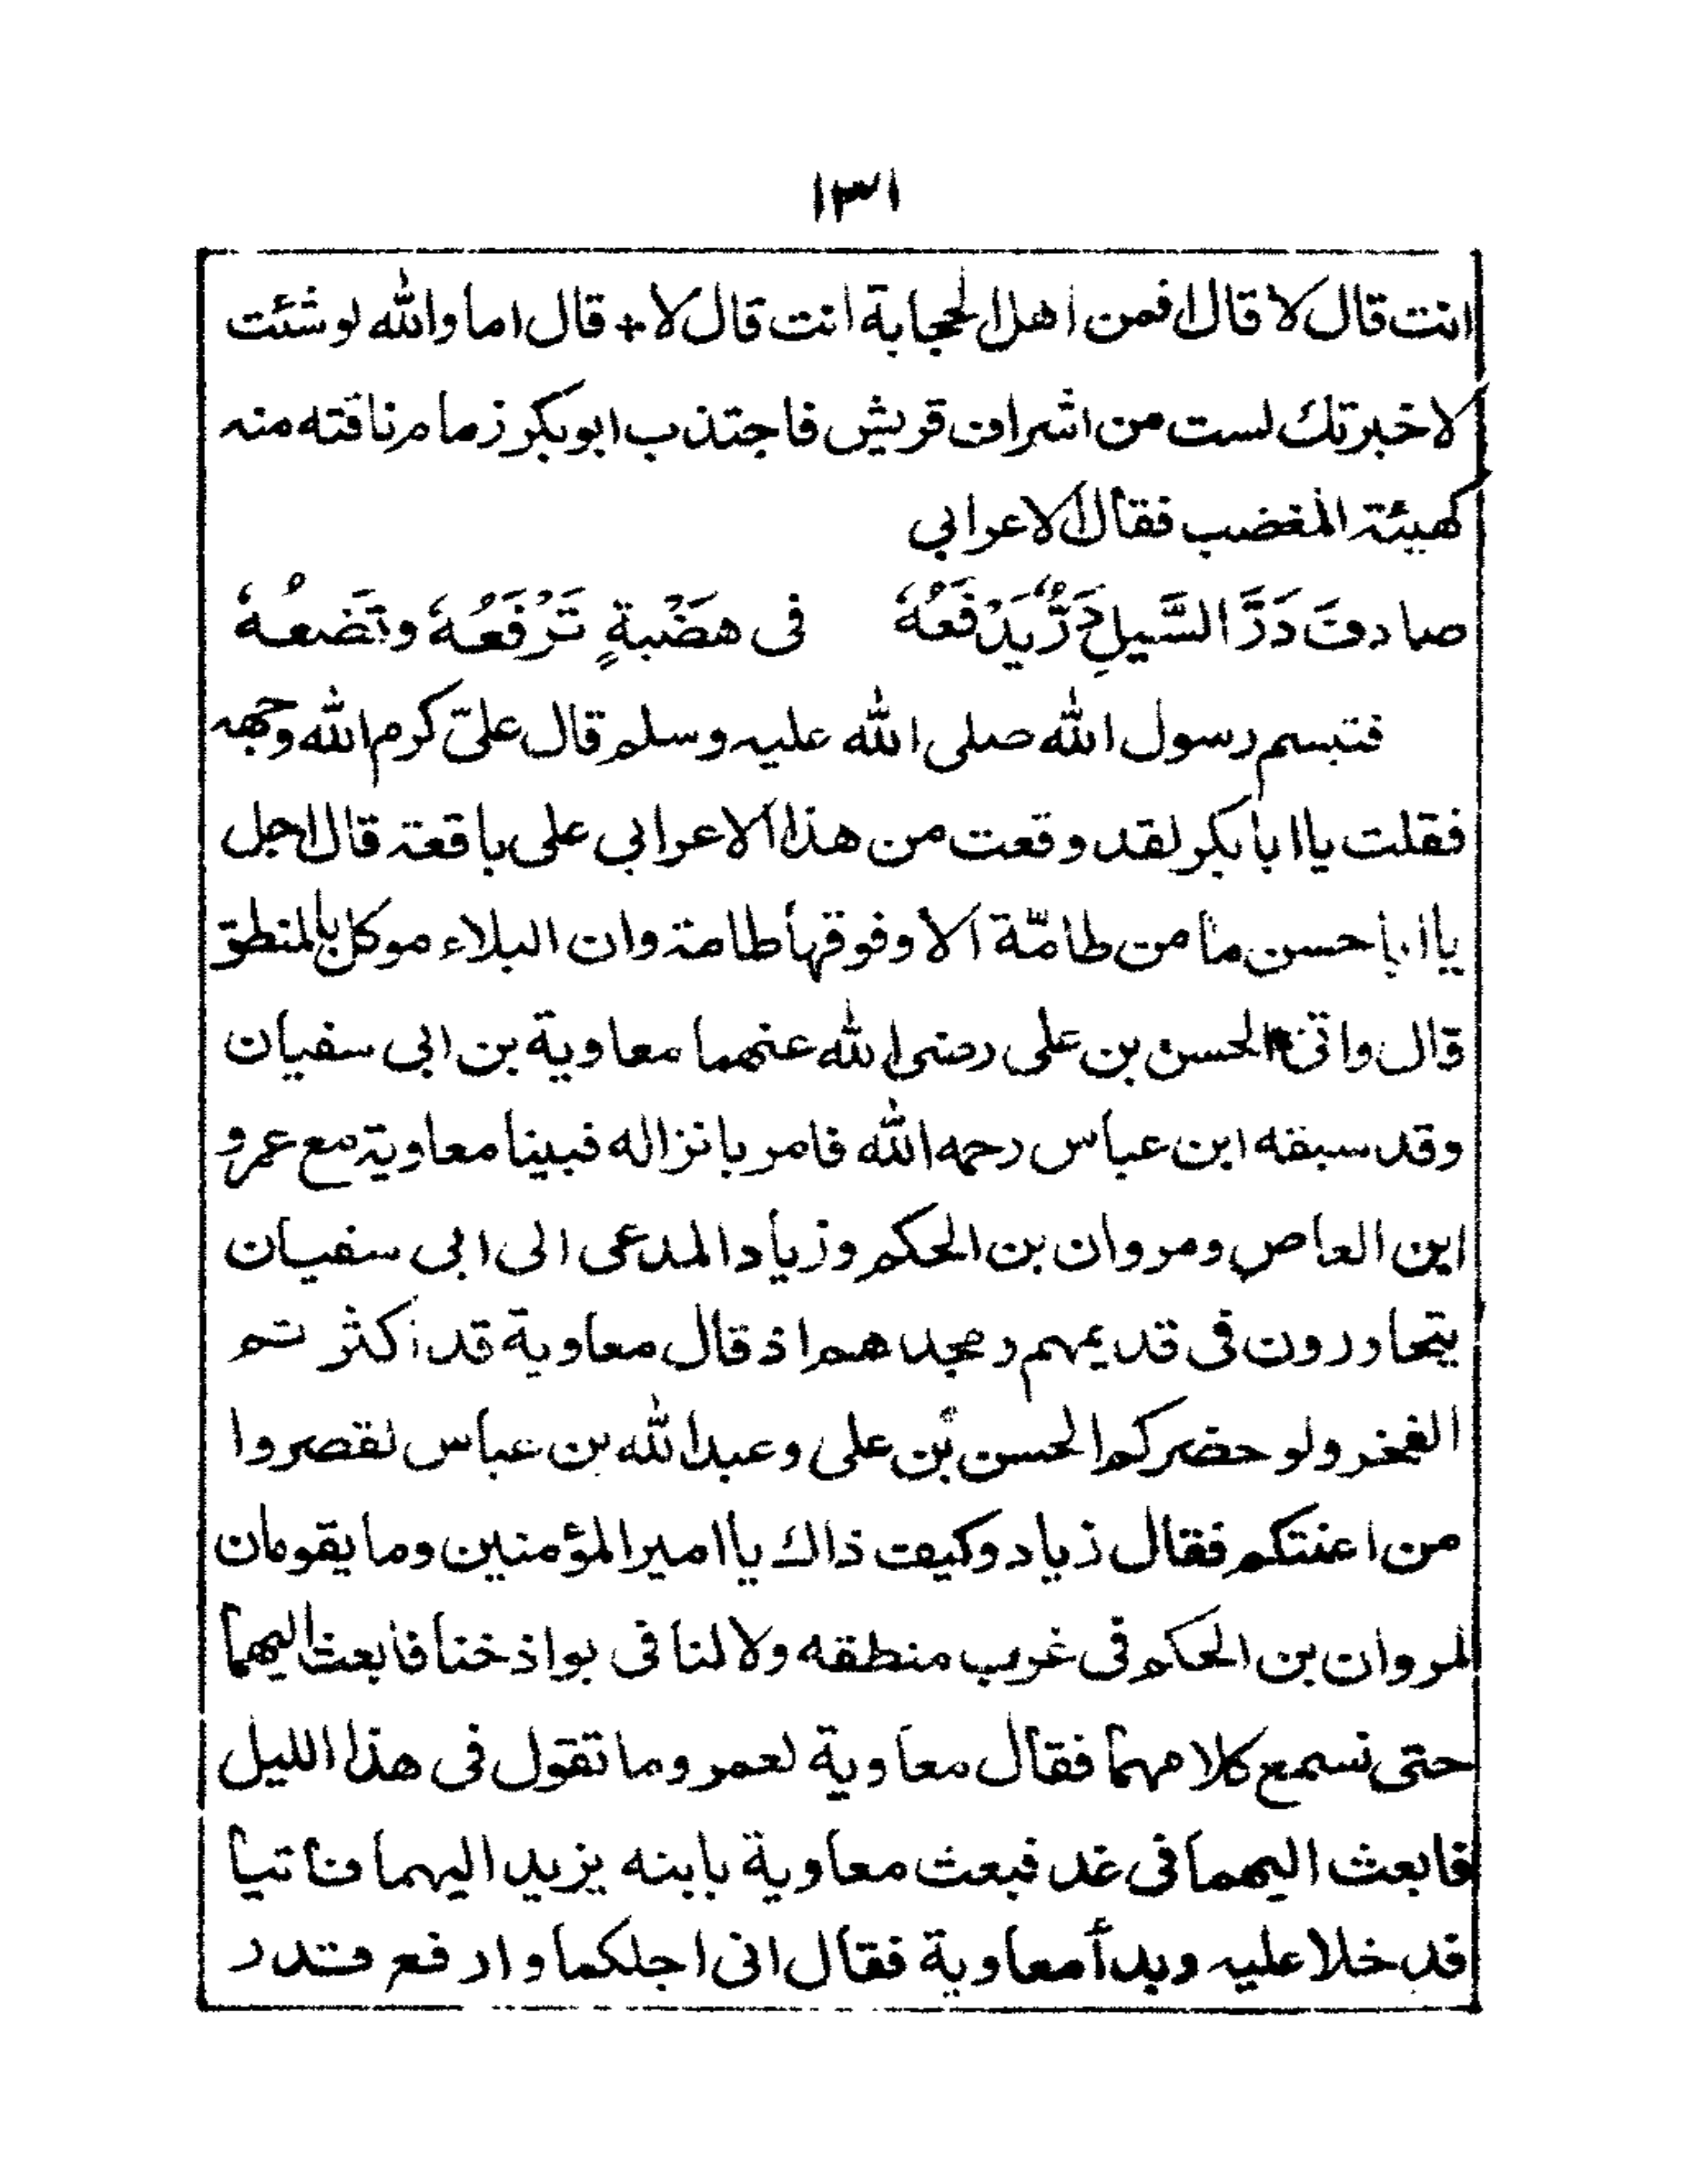 ١٣١
انت قال لا قال افمن اهل الحجابة انت قال لا + قال اما والله لوشئت
لاخبرتك لست من اشراف قريش فاجتذب ابوبكر زمام ناقته منه
كهيئة المغضب فقال الاعرابي
صادفَ دَرَّ السَّيلِ دَرٌّ يَدْفَعُهٗ فى هضْبةٍ تَرْفَعُهٗ وتَضعُهٗ
فتبسم رسول الله صلى الله عليه وسلم قال علىّ كرم الله وجهه
فقلت يا ابا بكر لقد وقعت من هذا الاعرابي على باقعة قال اجل
يا ابا حسن ما من طامّة الا وفوقها طامة وان البلاء موكل بالمنطق
قال واتى الحسن بن على رضى الله عنهما معاوية بن ابى سفيان
وقد سبقه ابن عباس رحمه الله فامر بانزاله فبينا معاوية مع عمرو
ابن العاص ومروان بن الحكم وزياد المدعى الى ابى سفيان
يتحاورون فى قديمهم ومجدهم اذ قال معاوية قد اكثرتم
الفخر ولو حضركم الحسن بن على وعبد الله بن عباس لقصروا
من اعنتكم فقال زياد وكيف ذاك يا امير المؤمنين وما يقومان
لمروان بن الحكم فى غرب منطقه ولا لنا فى بواذخنا فابعث اليهما
حتى نسمع كلامهما فقال معاوية لعمرو ما تقول فى هذا الليل
فابعث اليهما فى غد فبعث معاوية بابنه يزيد اليهما فاتيا
فدخلا عليه وبدأ معاوية فقال انى اجلكما وارفع قدر